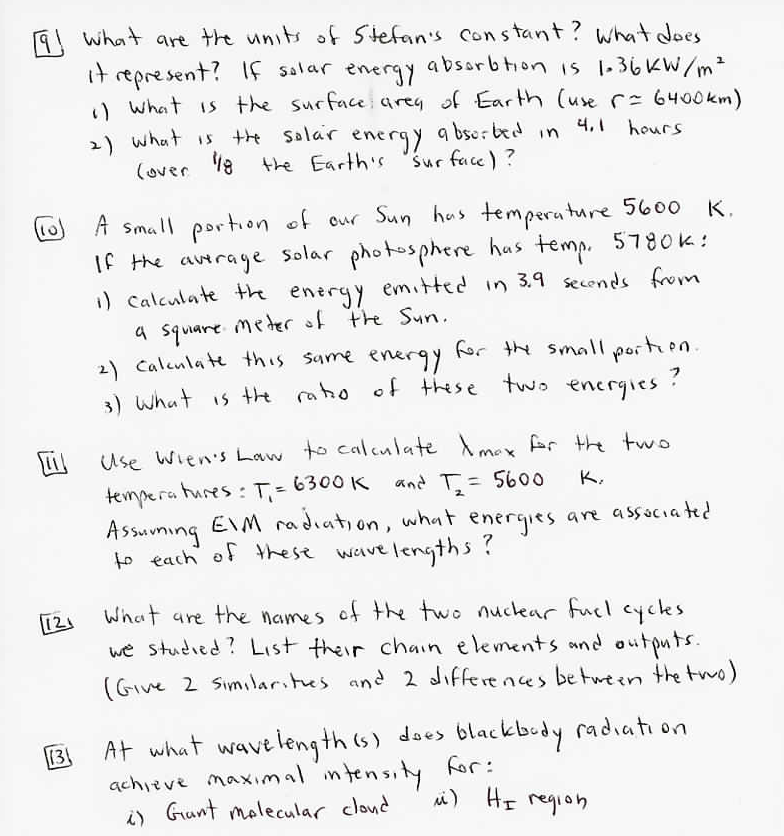 9 What are the units of Stefan's constant? What does
it represent? If solar energy absorbtion is 1.36 KW/m²
1) What is the surface area of Earth (use r ≃ 6400km)
2) What is the solar energy absorbed in 4.1 hours
(over 1/8 the Earth's surface)?
10 A small portion of our Sun has temperature 5600 K.
If the average solar photosphere has temp. 5780K:
1) Calculate the energy emitted in 3.9 seconds from
a square meter of the Sun.
2) Calculate this same energy for the small portion.
3) What is the ratio of these two energies?
11 Use Wien's Law to calculate λmax for the two
temperatures: T₁ = 6300K and T₂ = 5600 K.
Assuming E\M radiation, what energies are associated
to each of these wavelengths?
12 What are the names of the two nuclear fuel cycles
we studied? List their chain elements and outputs.
(Give 2 similarities and 2 differences between the two)
13 At what wavelength(s) does blackbody radiation
achieve maximal intensity for:
i) Giant molecular cloud ii) H_I region